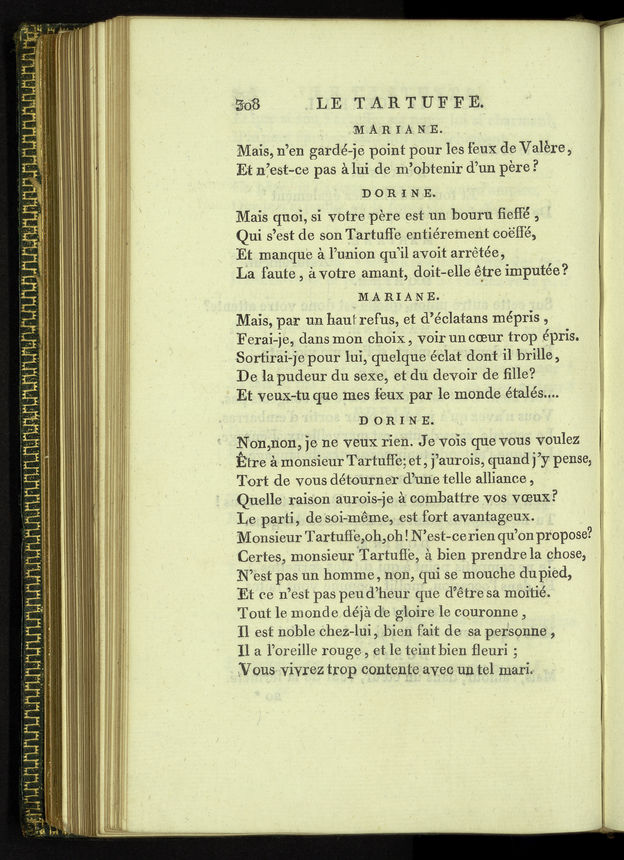 308 LE TARTUFFE.
MARIANE.
Mais, n'en gardé-je point pour les feux de Valère,
Et n'est-ce pas à lui de m'obtenir d'un père ?
DORINE.
Mais quoi, si votre père est un bouru fieffé,
Qui s'est de son Tartuffe entiérement coëffé,
Et manque à l'union qu'il avoit arrêtée,
La faute, à votre amant, doit-elle être imputée ?
MARIANE.
Mais, par un haut refus, et d'éclatans mépris,
Ferai-je, dans mon choix, voir un cœur trop épris.
Sortirai-je pour lui, quelque éclat dont il brille,
De la pudeur du sexe, et du devoir de fille ?
Et veux-tu que mes feux par le monde étalés....
DORINE.
Non, non, je ne veux rien. Je vois que vous voulez
Être à monsieur Tartuffe; et, j'aurois, quand j'y pense,
Tort de vous détourner d'une telle alliance,
Quelle raison aurois-je à combattre vos vœux ?
Le parti, de soi-même, est fort avantageux.
Monsieur Tartuffe, oh, oh ! N'est-ce rien qu'on propose ?
Certes, monsieur Tartuffe, à bien prendre la chose,
N'est pas un homme, non, qui se mouche du pied,
Et ce n'est pas peu d'heur que d'être sa moitié.
Tout le monde déjà de gloire le couronne,
Il est noble chez-lui, bien fait de sa personne,
Il a l'oreille rouge, et le teint bien fleuri ;
Vous vivrez trop contente avec un tel mari.